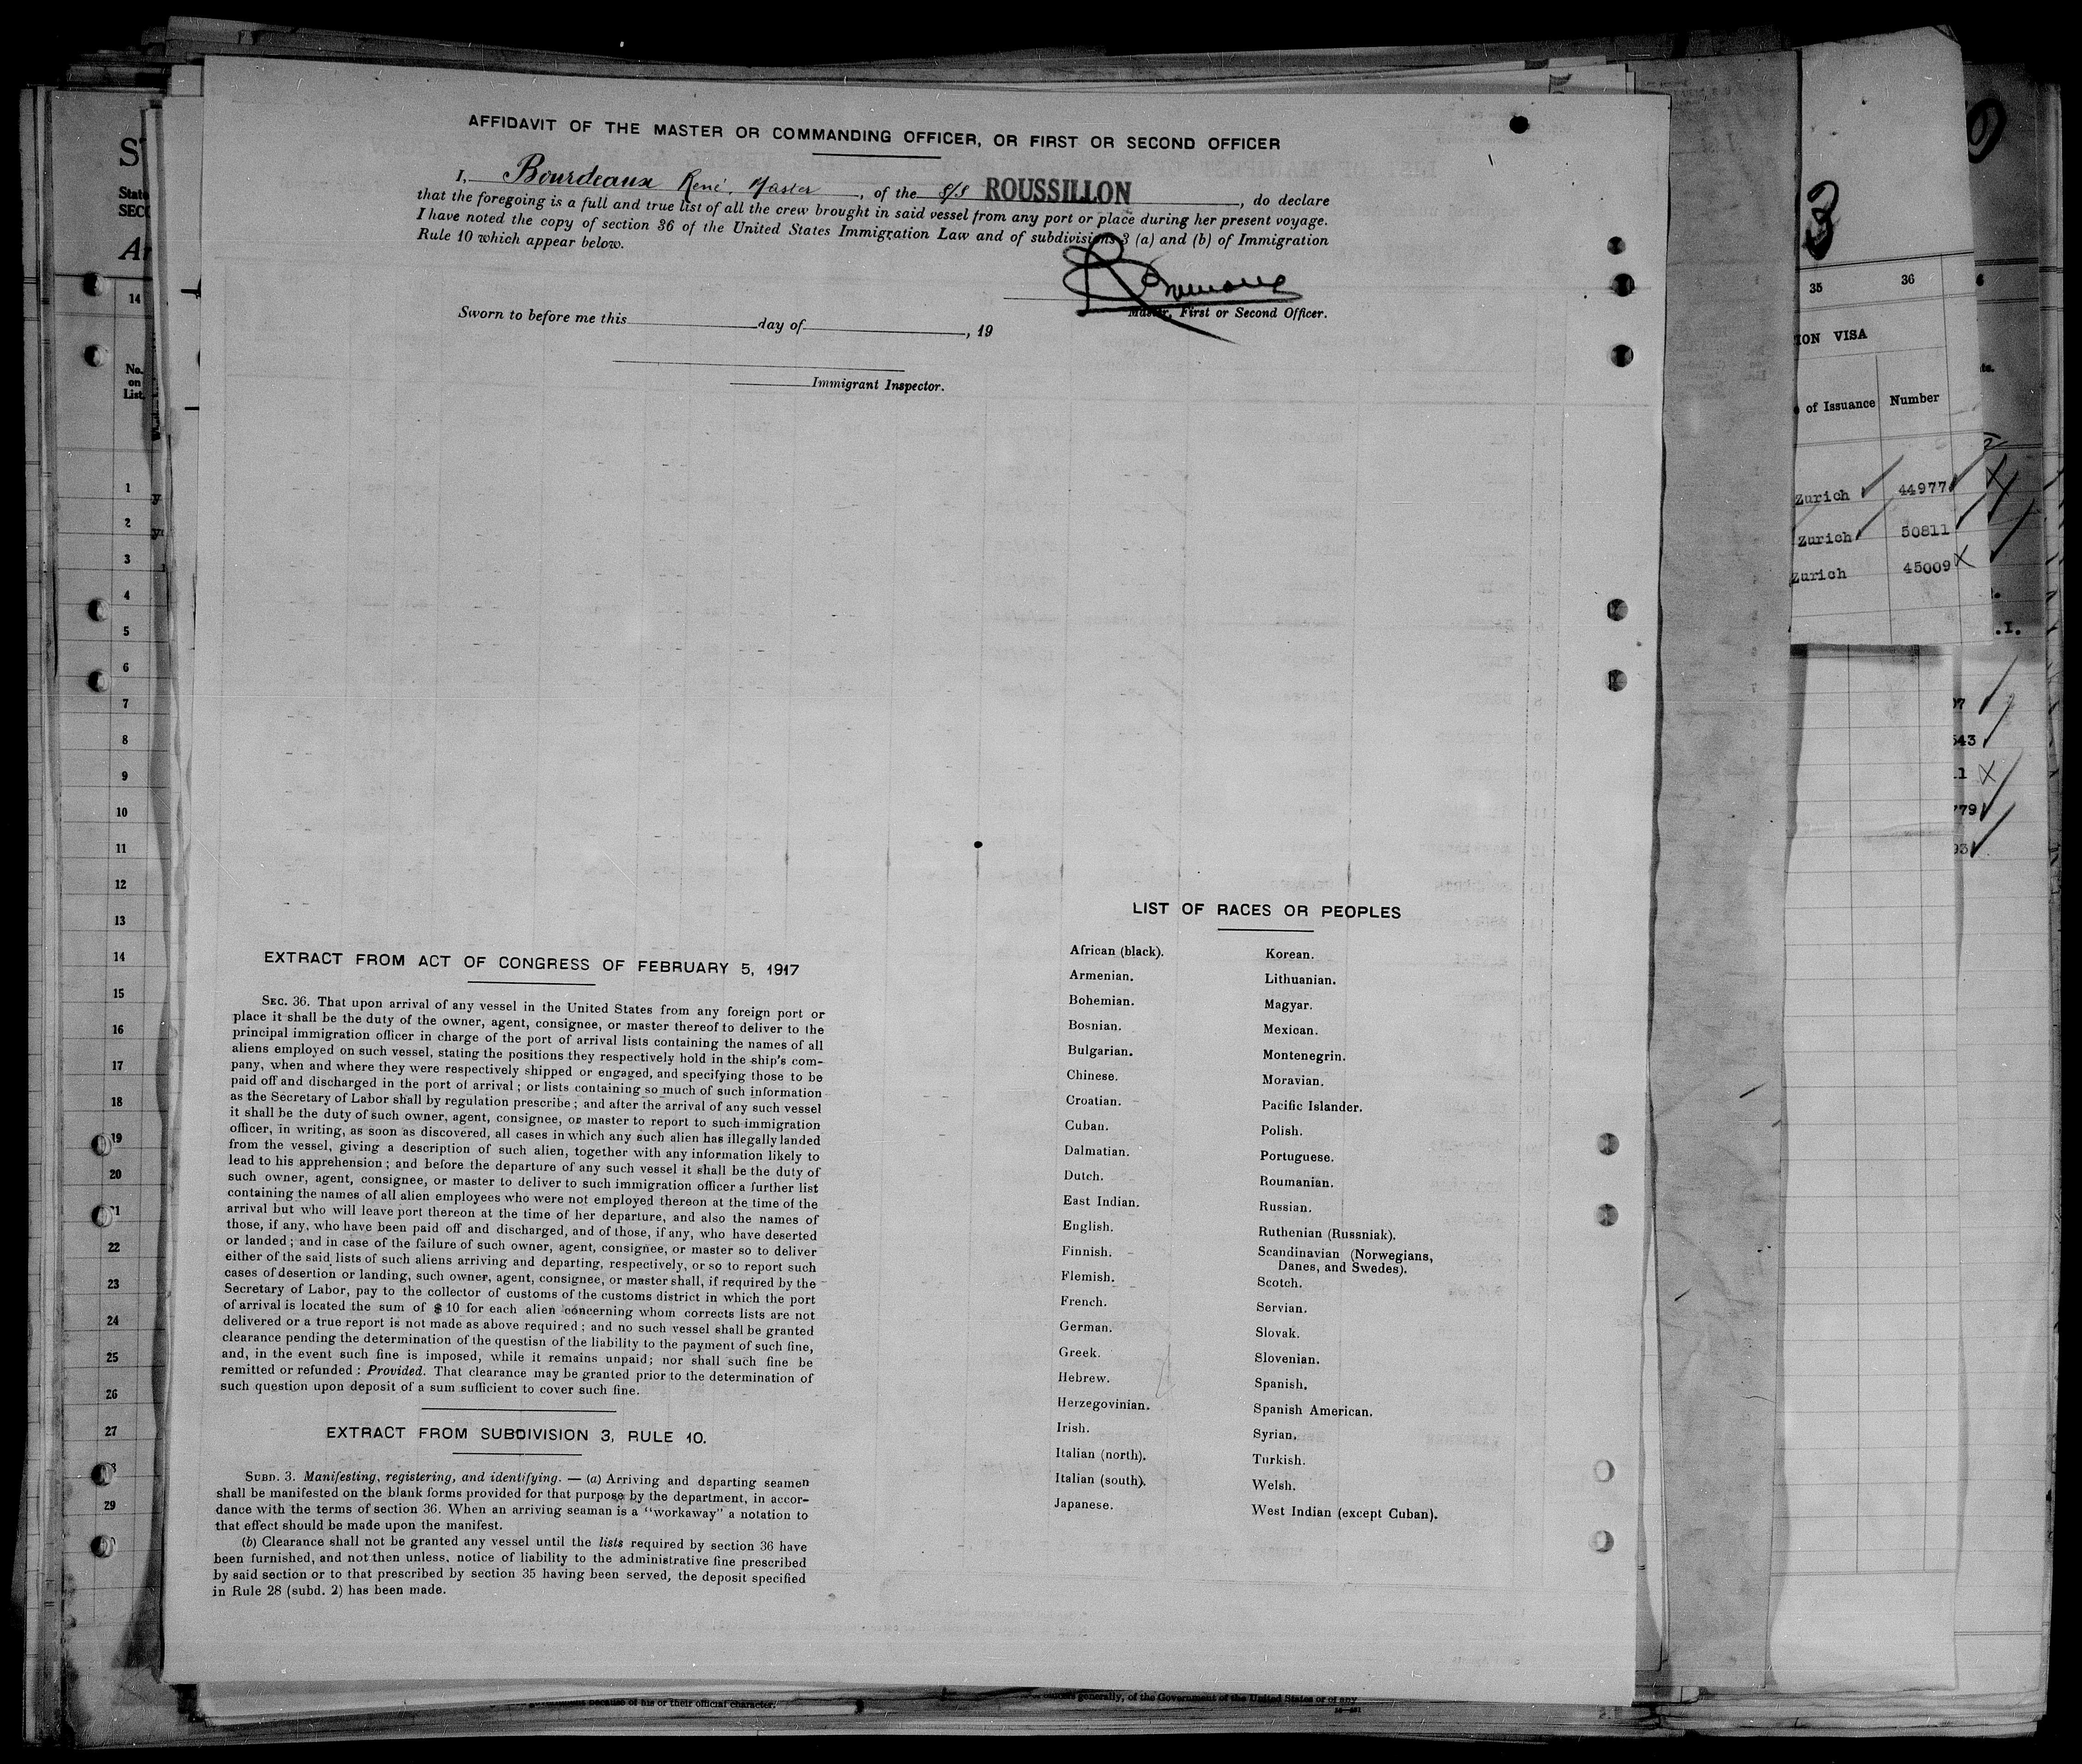 AFFIDAVIT OF THE MASTER OR COMMANDING OFFICER, OR FIRST OR SECOND OFFICER
I, Bourdeaux René, Master, of the S/S ROUSSILLON, do declare
that the foregoing is a full and true list of all the crew brought in said vessel from any port or place during her present voyage.
I have noted the copy of section 36 of the United States Immigration Law and of subdivisions 3 (a) and (b) of Immigration
Rule 10 which appear below.
Master, First or Second Officer.
Sworn to before me this day of , 19
Immigrant Inspector.
EXTRACT FROM ACT OF CONGRESS OF FEBRUARY 5, 1917
SEC. 36. That upon arrival of any vessel in the United States from any foreign port or
place it shall be the duty of the owner, agent, consignee, or master thereof to deliver to the
principal immigration officer in charge of the port of arrival lists containing the names of all
aliens employed on such vessel, stating the positions they respectively hold in the ship's com-
pany, when and where they were respectively shipped or engaged, and specifying those to be
paid off and discharged in the port of arrival; or lists containing so much of such information
as the Secretary of Labor shall by regulation prescribe; and after the arrival of any such vessel
it shall be the duty of such owner, agent, consignee, or master to report to such immigration
officer, in writing, as soon as discovered, all cases in which any such alien has illegally landed
from the vessel, giving a description of such alien, together with any information likely to
lead to his apprehension; and before the departure of any such vessel it shall be the duty of
such owner, agent, consignee, or master to deliver to such immigration officer a further list
containing the names of all alien employees who were not employed thereon at the time of the
arrival but who will leave port thereon at the time of her departure, and also the names of
those, if any, who have been paid off and discharged, and of those, if any, who have deserted
or landed; and in case of the failure of such owner, agent, consignee, or master so to deliver
either of the said lists of such aliens arriving and departing, respectively, or so to report such
cases of desertion or landing, such owner, agent, consignee, or master shall, if required by the
Secretary of Labor, pay to the collector of customs of the customs district in which the port
of arrival is located the sum of $ 10 for each alien concerning whom corrects lists are not
delivered or a true report is not made as above required; and no such vessel shall be granted
clearance pending the determination of the questisn of the liability to the payment of such fine,
and, in the event such fine is imposed, while it remains unpaid; nor shall such fine be
remitted or refunded: Provided. That clearance may be granted prior to the determination of
such question upon deposit of a sum sufficient to cover such fine.
EXTRACT FROM SUBDIVISION 3, RULE 10.
SUBD. 3. Manifesting, registering, and identifying. — (a) Arriving and departing seamen
shall be manifested on the blank forms provided for that purpose by the department, in accor-
dance with the terms of section 36. When an arriving seaman is a "workaway" a notation to
that effect should be made upon the manifest.
(b) Clearance shall not be granted any vessel until the lists required by section 36 have
been furnished, and not then unless, notice of liability to the administrative fine prescribed
by said section or to that prescribed by section 35 having been served, the deposit specified
in Rule 28 (subd. 2) has been made.
LIST OF RACES OR PEOPLES
African (black).
Armenian.
Bohemian.
Bosnian.
Bulgarian.
Chinese.
Croatian.
Cuban.
Dalmatian.
Dutch.
East Indian.
English.
Finnish.
Flemish.
French.
German.
Greek.
Hebrew.
Herzegovinian.
Irish.
Italian (north).
Italian (south).
Japanese.
Korean.
Lithuanian.
Magyar.
Mexican.
Montenegrin.
Moravian.
Pacific Islander.
Polish.
Portuguese.
Roumanian.
Russian.
Ruthenian (Russniak).
Scandinavian (Norwegians,
Danes, and Swedes).
Scotch.
Servian.
Slovak.
Slovenian.
Spanish.
Spanish American.
Syrian.
Turkish.
Welsh.
West Indian (except Cuban).
State
SEC
14
No.
on
List.
1
2
3
4
5
6
7
8
9
10
11
12
13
14
15
16
17
18
19
20
22
23
24
25
26
27
29
3
35 36
ION VISA
of Issuance Number
Zurich 44977
Zurich 50811
Zurich 45009
.I.
543
779
because of his or their official character.
generally, of the Government of the United States or of any